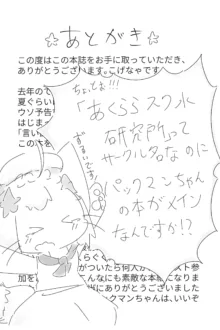 ☆あとがき☆
この度はこの本誌をお手に取っていただき、
ありがとうございます。こげなやです。
ちょっと!!!
「あくらら スク水
研究所」って
サークル名なのに
パックマンちゃん
の本がメイン
なんですか!?
ずるいです
去年の
夏ぐらい
ウソ予告
はじまっ
「言い
この本を
らぐ
がついたら何人か
スト参
加を
こんなにも素敵な本になりま
にありがとうございました
ックマンちゃんは、いいぞ